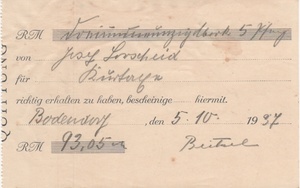 QUITTUNG
RM Dreiundneunzigmark 5 Pfg
von Josef Lorscheid
für Kurtaxe
richtig erhalten zu haben, bescheinige hiermit.
Bodendorf, den 5.10. 1937
RM 93,05